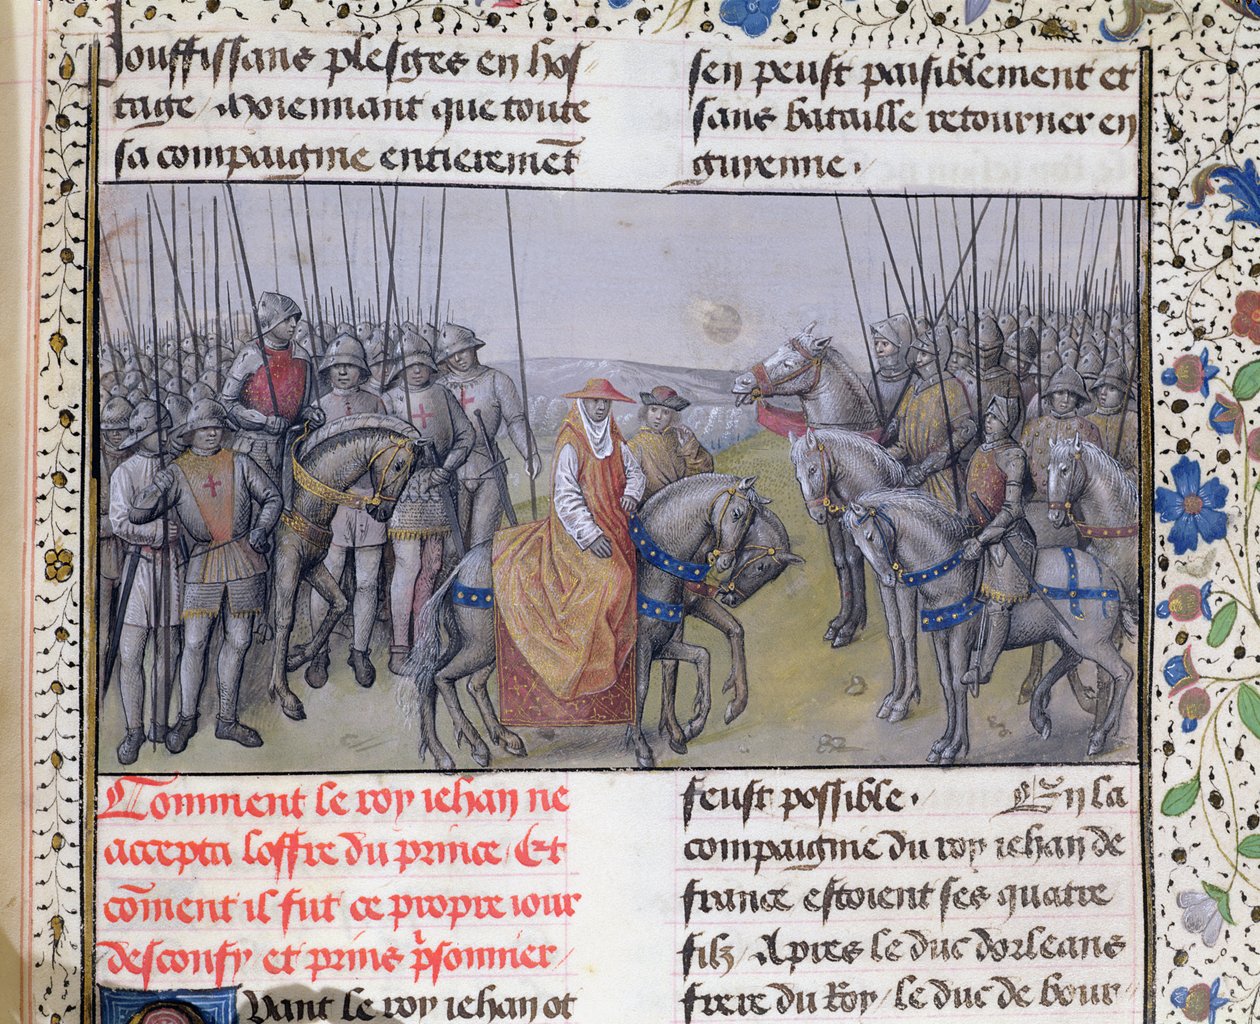 souffissans plesges en hos
tage / Moiennant que toute
sa compaignie entieremēt
sen peust paisiblement et
sans bataille retourner en
guyenne .
Comment le roy iehan ne
accepta loffre du prince / Et
cōment il fut ce propre iour
desconfy et prins p̉sonnier /
Quant le roy iehan ot
feust possible . En la
compaignie du roy iehan de
france estoient ses quatre
filz / Apres le duc dorleans
frere du Roy / le duc de bour